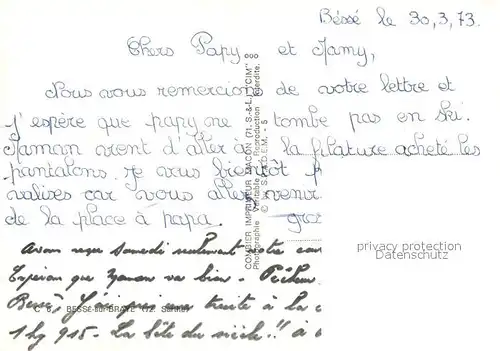 Béssé le 30,3,73.
Chers Papy et Jamy,
Nous vous remercions de votre lettre et
j'espère que papy ne tombe pas en ski.
Maman vient d'aller à la filature acheté les
pantalons. Je vous bientôt
valises car vous allez venir
de la place à papa. gros
Avons reçu Samedi seulement votre
Espérons que Maman va bien. Pêcheur
Bessé, j'ai pris une truite à la
1 kg 915 - La bête du siècle!! à
C 6. BESSÉ-sur-BRAYE (72. Sarthe)
COMBIER IMPRIMEUR MACON (71. S.-&-L.) "CIM"
Photographie Véritable Reproduction Interdite.
privacy protection
Datenschutz